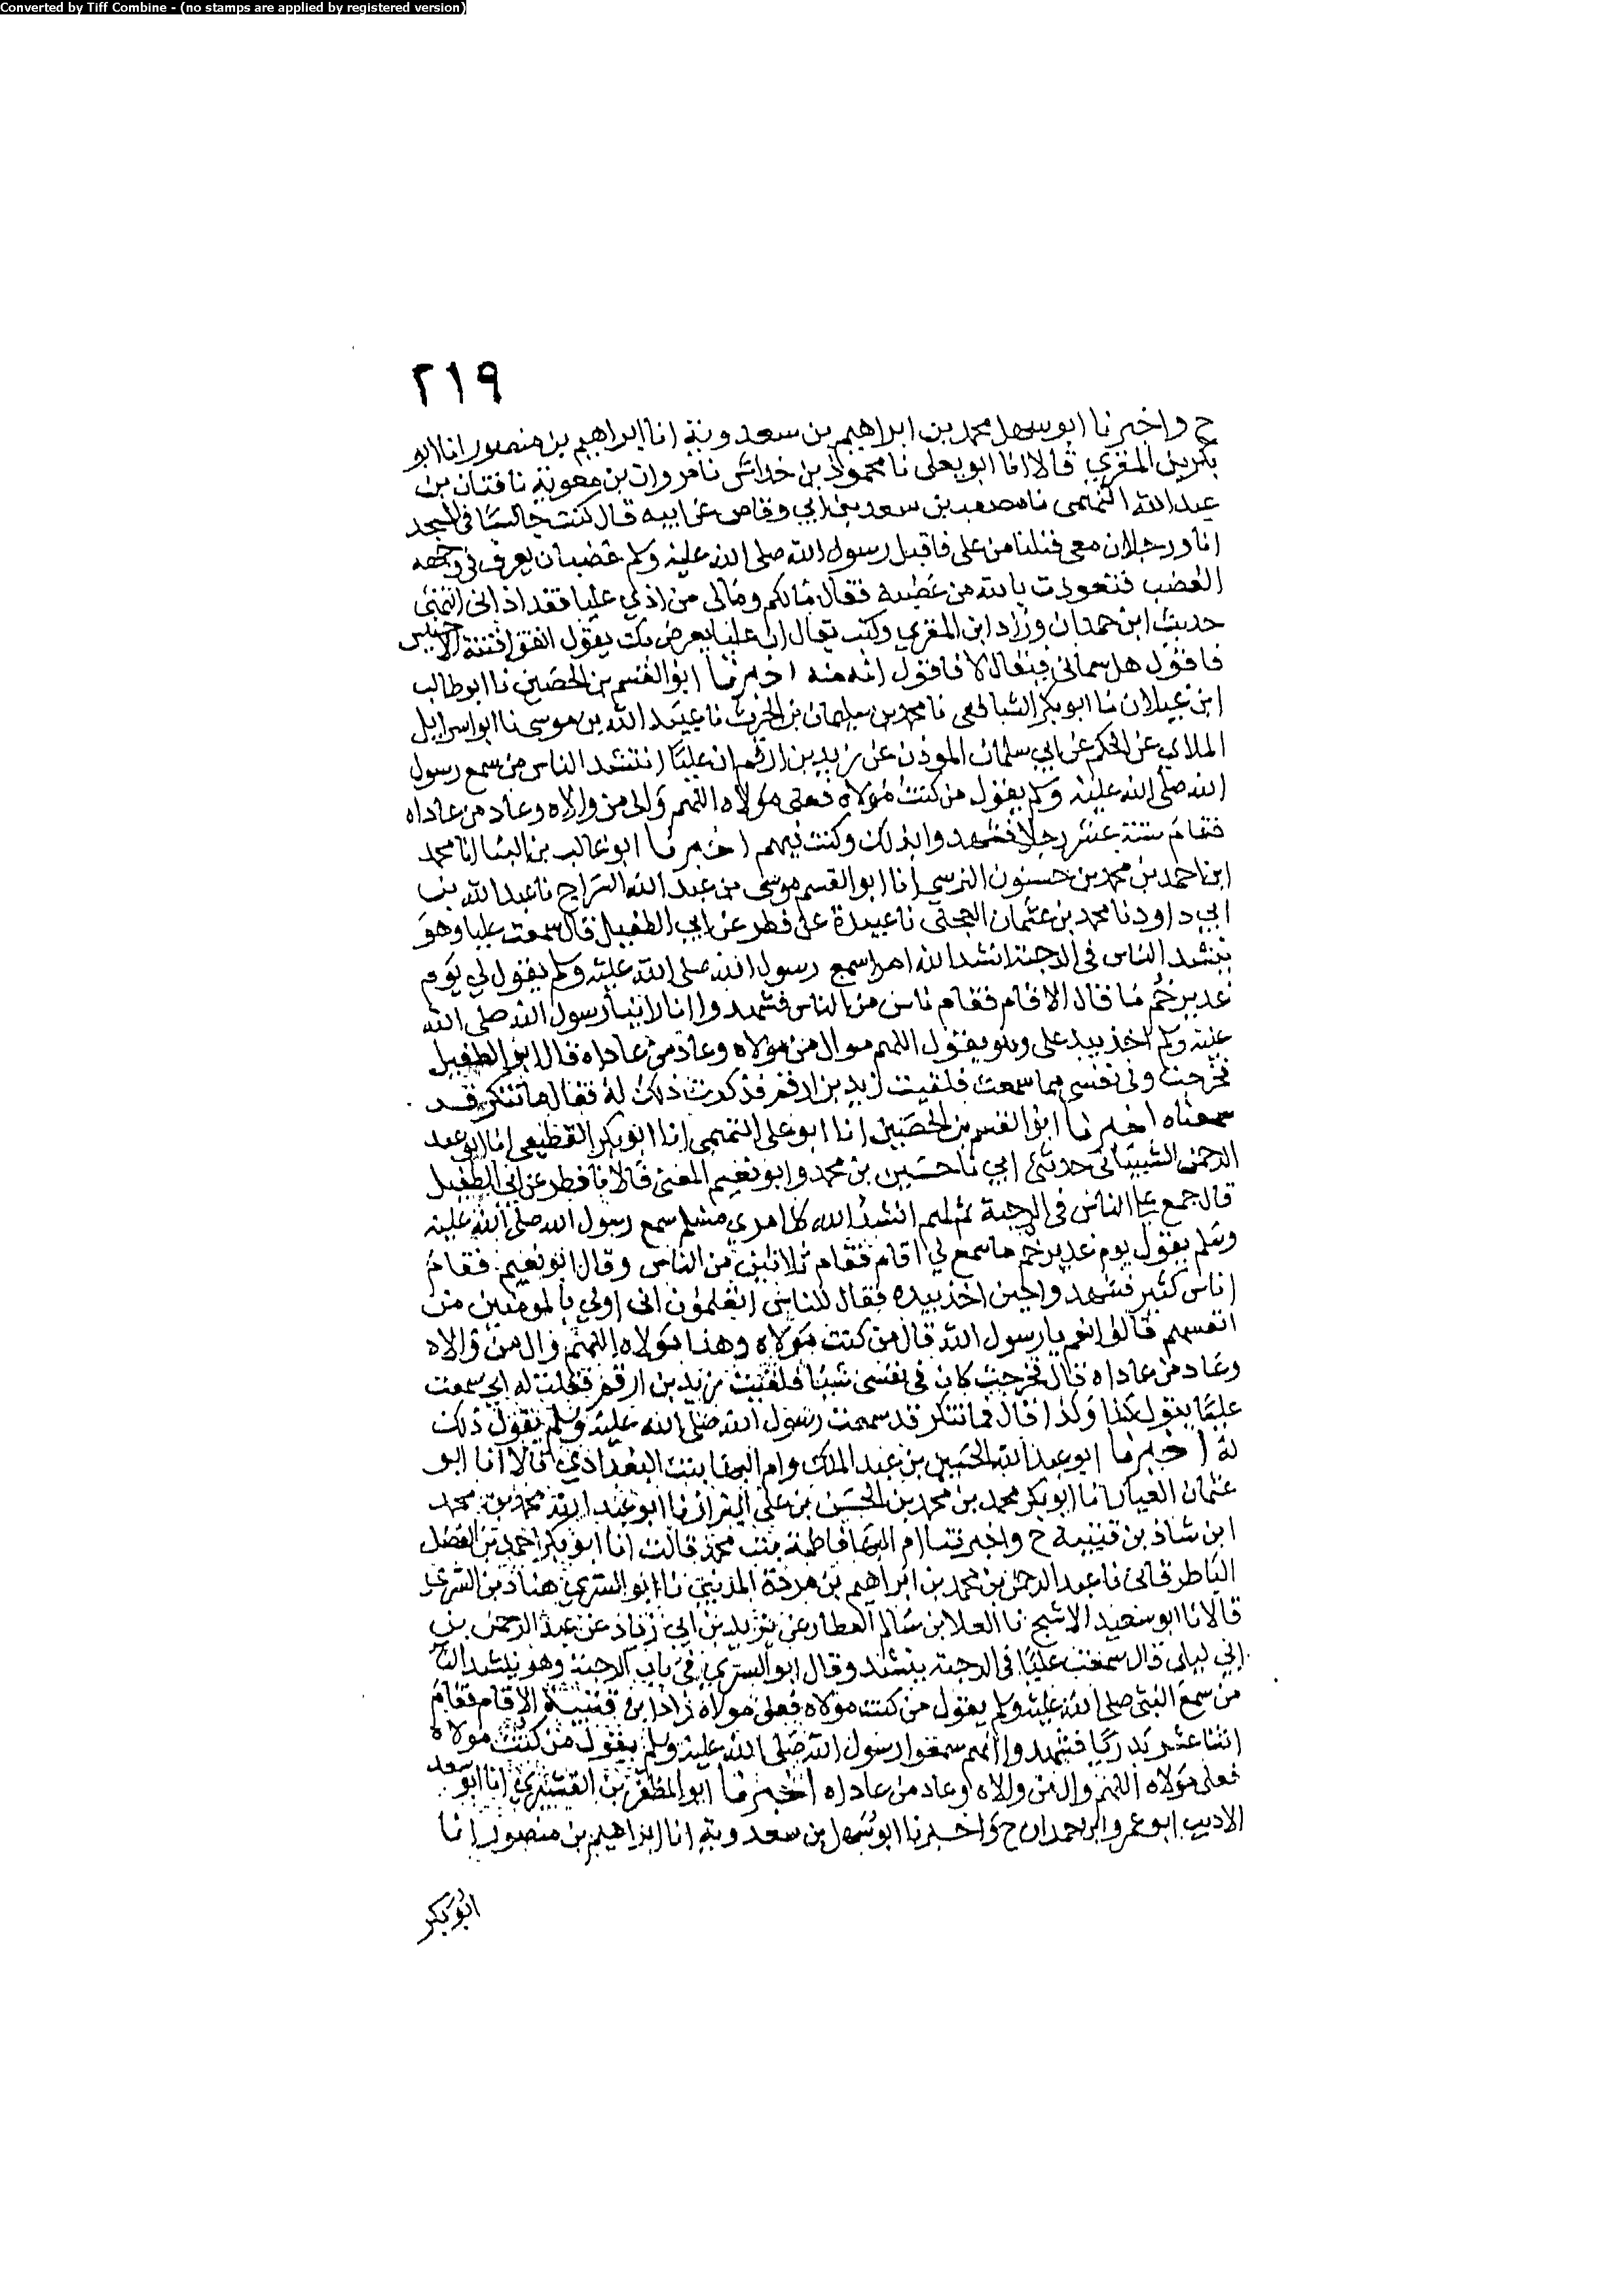 Converted by Tiff Combine - (no stamps are applied by registered version)
٢١٩
ح واخبرنا ابو سهل محمد بن ابراهيم بن سعدوية انا ابراهيم بن منصور انا ابو
بكر بن المقري قالا انا ابو يعلى نا محمود بن خداش نا مروان بن معوية نا قنان بن
عبد الله النهمى نا مصعب بن سعد بن ابي وقاص عن ابيه قال كنت جالسا فى المسجد
انا ورجلان معى فنلنا من على فاقبل رسول الله صلى الله عليه وسلم غضبان يعرف فى وجهه
الغضب فتعوذت بالله من غضبه فقال مالكم ومالى من اذى عليا فقد اذانى انتهى
حديث ابن حمدان وزاد ابن المقري وكنت يقال ان عليا يعرض بك يقول اتقوا فتنة الاخينس
فاقول هل سمانى فيقال لا فاقول اخبرنا ابو القسم بن الحصين نا ابو طالب
ابن غيلان نا ابو بكر الشافعى نا محمد بن سليمان بن الحرث نا عبيد الله بن موسى نا ابو اسرايل
الملاي عن الحكم عن ابي سلمان الموذن عن زيد بن ارقم ان عليا انتشد الناس من سمع رسول
الله صلى الله عليه وسلم يقول من كنت مولاه فعلى مولاه اللهم والى من والاه وعاد من عاداه
فقام ستة عشر رجلا فشهدوا بذلك وكنت فيهم اخبرنا ابو غالب بن البنا انا محمد
ابن احمد بن محمد بن حسنون النرسي انا ابو القسم موسى بن عبد الله السراج نا عبد الله بن
ابي داود نا محمد بن عثمان العجلى نا عبيدة عن فطر عن ابي الطفيل قال سمعت عليا وهو
ينشد الناس فى الرحبة انشد الله امرا سمع رسول الله صلى الله عليه وسلم يقول لي يوم
غدير خم ما قال الا قام فقام ناس من الناس فشهدوا انا راينا رسول الله صلى الله
عليه وسلم اخذ بيد على وهو يقول اللهم وال من والاه وعاد من عاداه قال ابو الطفيل
فخرجت وفى نفسى مما سمعت فلقيت زيد بن ارقم فذكرت ذلك له فقال ما تنكر قد
سمعناه اخبرنا ابو القسم بن الحصين انا ابو على التميمى انا ابو بكر القطيعى انا ابو عبد
الرحمن الشيبانى حدثنى ابي نا حسين بن محمد وابو نعيم المعنى قالا نا فطر عن ابي الطفيل
قال جمع على الناس فى الرحبة ثم لهم انشد الله كل امرى مسلم سمع رسول الله صلى الله عليه
وسلم يقول يوم غدير خم ما سمع لي اقام فقام ثلاثين من الناس وقال ابو نعيم فقام
اناس كثير فشهدوا حين اخذ بيده فقال للناس اتعلمون انى اولى بالمومنين من
انفسهم قالوا نعم يا رسول الله قال من كنت مولاه وهذا مولاه اللهم وال من والاه
وعاد من عاداه قال فخرجت كان فى نفسى شيئا فلقيت زيد بن ارقم فقلت له انى سمعت
عليا يقول كذا وكذا قال فما تنكر قد سمعت رسول الله صلى الله عليه وسلم يقول ذلك
له اخبرنا ابو عبد الله الحسين بن عبد الملك وام البها بنت البغدادي قالا انا ابو
عثمان العيار انا ابو بكر محمد بن محمد بن الحسن بن على البزاز نا ابو عبد الله محمد بن محمد
ابن شاذ بن قتيبة ح واخبرتنا ام البها فاطمة بنت محمد قالت انا ابو بكر احمد بن الفضل
الباطرقانى نا عبد الرحمن بن محمد بن ابراهيم بن مردة المدينى نا ابو السري هناد بن السرى
قالا نا ابو سعيد الاشج نا العلا بن سالم العطار عن يزيد بن ابي زياد عن عبد الرحمن بن
ابي ليلى قال سمعت عليا فى الرحبة ينشد وقال ابو السري فى باب الرحبة وهو ينشد الناس
من سمع النبى صلى الله عليه وسلم يقول من كنت مولاه فعلى مولاه زاد ابن قتيبة الا قام فقام
اثنا عشر بدريا فشهدوا انهم سمعوا رسول الله صلى الله عليه وسلم يقول من كنت مولاه
فعلى مولاه اللهم وال من والاه وعاد من عاداه اخبرنا ابو المظفر بن القشيري انا ابو سعد
الاديب ابو عمرو ابن حمدان ح واخبرنا ابو سهل بن سعدوية انا ابراهيم بن منصور انا
ابو بكر